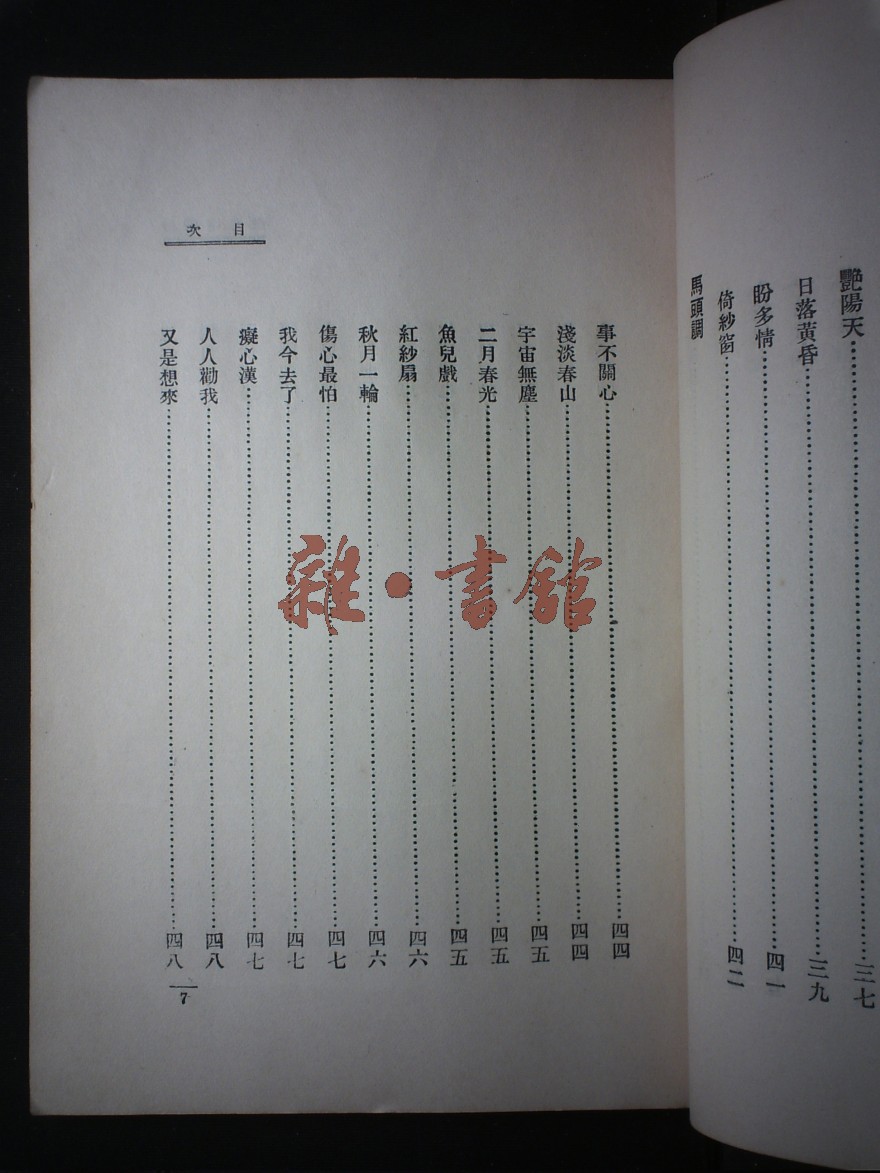 艷陽天 三七
日落黃昏 三九
盼多情 四一
倚紗窗 四二
馬頭調
目次
事不關心 四四
淺淡春山 四四
宇宙無塵 四五
二月春光 四五
魚兒戲 四五
紅紗扇 四六
秋月一輪 四六
傷心最怕 四七
我今去了 四七
癡心漢 四七
人人勸我 四八
又是想來 四八
7
雜·書館